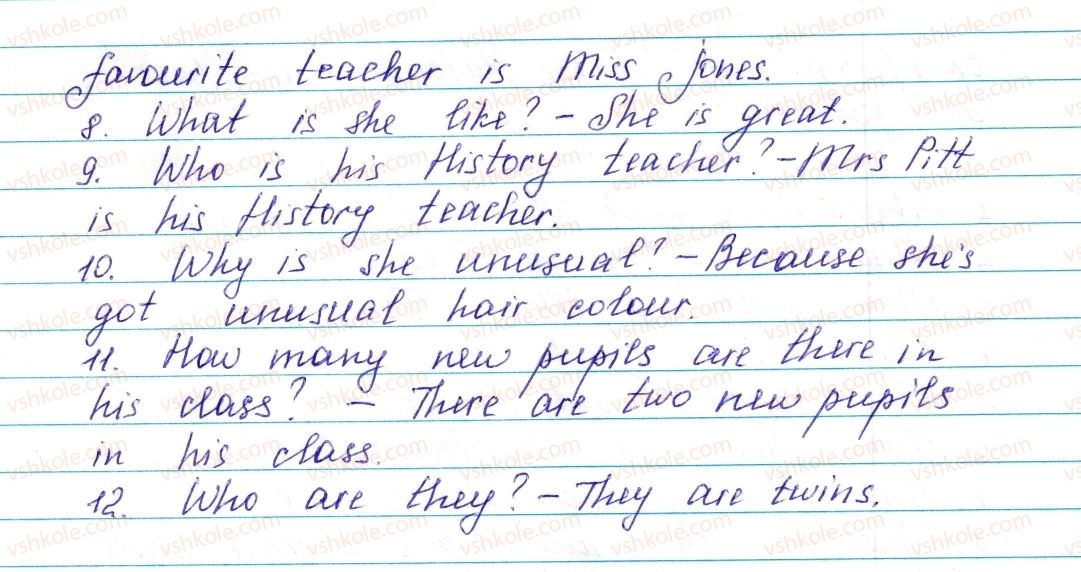 favourite teacher is Miss Jones.
8. What is she like? – She is great.
9. Who is his History teacher? – Mrs Pitt
is his History teacher.
10. Why is she unusual? – Because she's
got unusual hair colour.
11. How many new pupils are there in
his class? – There are two new pupils
in his class.
12. Who are they? – They are twins.
vshkole.com